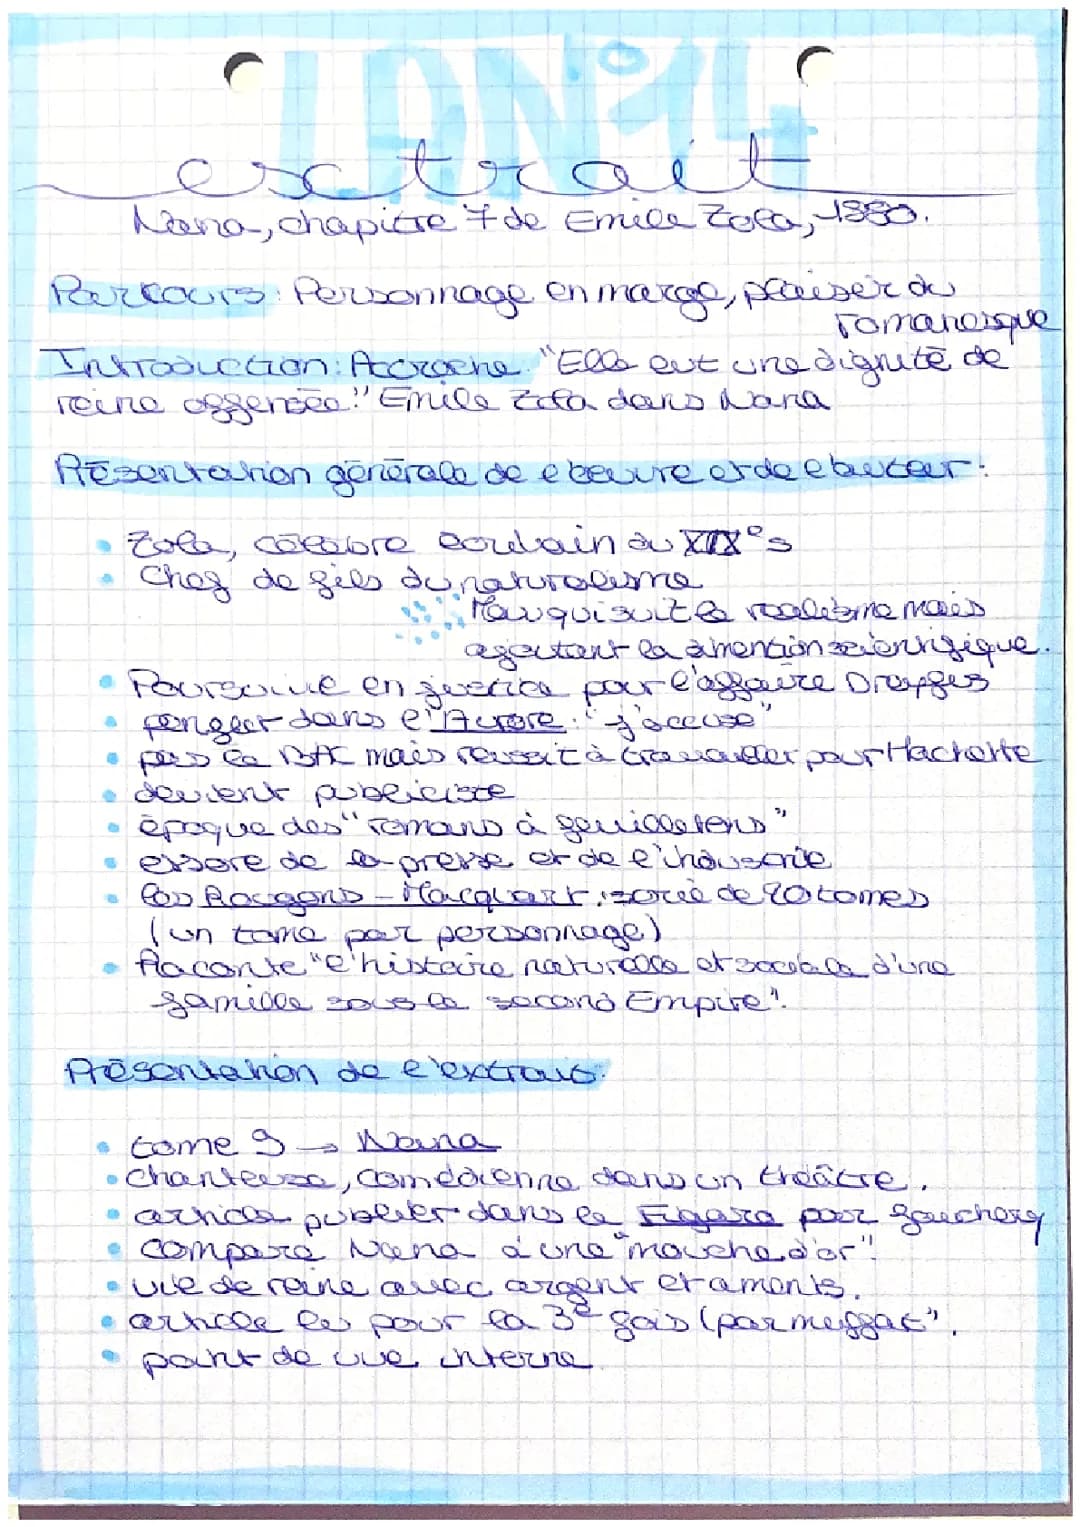 LDN°14
extrait
Nana, chapitre 7 de Emile Zola, 1880.
Parcours: Personnage en marge, plaisir du
romanesque
Introduction: Accroche "Elle eut une dignité de
reine offensée." Emile Zola dans Nana
Présentation générale de l'œuvre et de l'auteur:
• Zola, célèbre écrivain du XIXe s
• Chef de fils du naturalisme
Mouv qui suit le realisme mais
ajoutant la dimention scientifique.
• Poursuivie en justice pour l'affaire Dreyffes
• dans l'Aurore: "j'accuse"
• pas le BAC mais reussit à travailler pour Hachette
• devient publiciste
• époque des "romans à feuilletons"
• essore de la presse et de l'industrie
• Les Rougons-Macquart, série de 20 tomes
(un tome par personnage)
• Raconte "l'histoire naturelle et sociale d'une
famille sous le second Empire".
Présentation de l'extrait:
• tome 9 → Nana
• chanteuse, comédienne dans un théâtre.
• article publier dans le Figaro par fauchery
• compare Nana à une "mouche d'or".
• vie de reine avec argent et aments.
• article lu pour la 3e fois (par muffat".
• point de vue interne